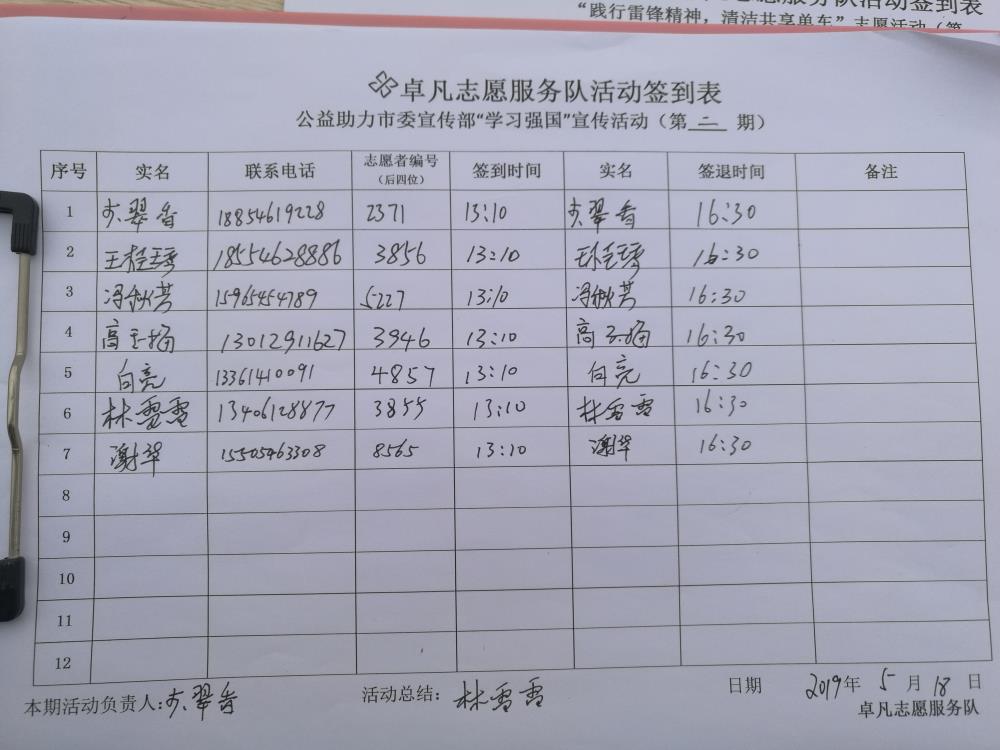 服务队活动签到表
“践行雷锋精神，清洁共享单车”志愿活动（第
卓凡志愿服务队活动签到表
公益助力市委宣传部“学习强国”宣传活动（第 二 期）
序号 实名 联系电话 志愿者编号（后四位） 签到时间 实名 签退时间 备注
1 翠香 18854619228 2371 13:10 翠香 16:30
2 王桂琴 18554628886 3856 13:10 王桂琴 16:30
3 冯秋芳 15965454789 5227 13:10 冯秋芳 16:30
4 高玉梅 13012911627 3946 13:10 高玉梅 16:30
5 白亮 13361410091 4857 13:10 白亮 16:30
6 林雪雪 13406128877 3855 13:10 林雪雪 16:30
7 谢华 15505463308 8565 13:10 谢华 16:30
8
9
10
11
12
本期活动负责人: 翠香 活动总结: 林雪雪 日期 2019年 5 月 18 日
卓凡志愿服务队